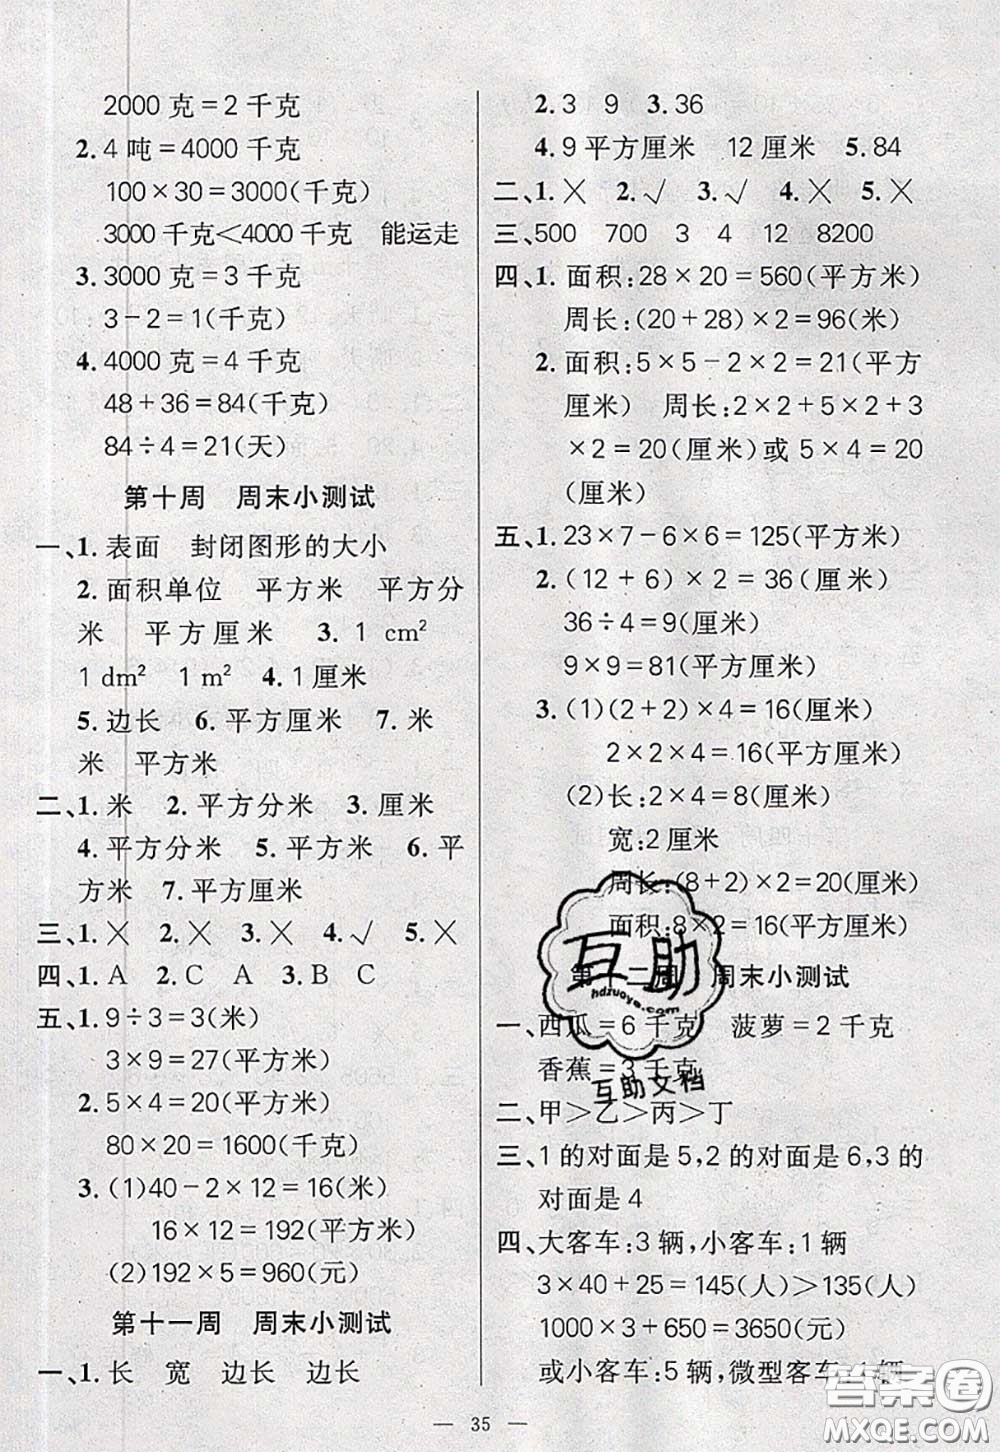 2000 克=2 千克
2.4 吨=4000 千克
100×30=3000(千克)
3000 千克<4000 千克 能运走
3.3000 克=3 千克
3-2=1(千克)
4.4000 克=4 千克
48+36=84(千克)
84÷4=21(天)
第十周 周末小测试
一、1.表面 封闭图形的大小
2.面积单位 平方米 平方分
米 平方厘米 3.1 cm²
1 dm² 1 m² 4.1厘米
5.边长 6.平方厘米 7.米
米 平方米
二、1.米 2.平方分米 3.厘米
4.平方分米 5.平方米 6.平
方米 7.平方厘米
三、1.╳ 2.╳ 3.╳ 4.√ 5.╳
四、1.A 2.C A 3.B C
五、1.9÷3=3(米)
3×9=27(平方米)
2.5×4=20(平方米)
80×20=1600(千克)
3.(1)40-2×12=16(米)
16×12=192(平方米)
(2)192×5=960(元)
第十一周 周末小测试
一、1.长 宽 边长 边长
2.3 9 3.36
4.9平方厘米 12厘米 5.84
二、1.╳ 2.√ 3.√ 4.╳ 5.╳
三、500 700 3 4 12 8200
四、1.面积:28×20=560(平方米)
周长:(20+28)×2=96(米)
2.面积:5×5-2×2=21(平方
厘米) 周长:2×2+5×2+3
×2=20(厘米)或 5×4=20
(厘米)
五、1.23×7-6×6=125(平方米)
2.(12+6)×2=36(厘米)
36÷4=9(厘米)
9×9=81(平方厘米)
3.(1)(2+2)×4=16(厘米)
2×2×4=16(平方厘米)
(2)长:2×4=8(厘米)
宽:2厘米
周长:(8+2)×2=20(厘米)
面积:8×2=16(平方厘米)
第十二周 周末小测试
一、西瓜=6 千克 菠萝=2 千克
香蕉=3千克
二、甲>乙>丙>丁
三、1的对面是5,2的对面是6,3的
对面是4
四、大客车:3 辆,小客车:1 辆
3×40+25=145(人)>135(人)
1000×3+650=3650(元)
或小客车:5 辆,微型客车:1 辆
— 35 —
互助
hdzuoye.com
互助文档
答案圈
MXQE.COM